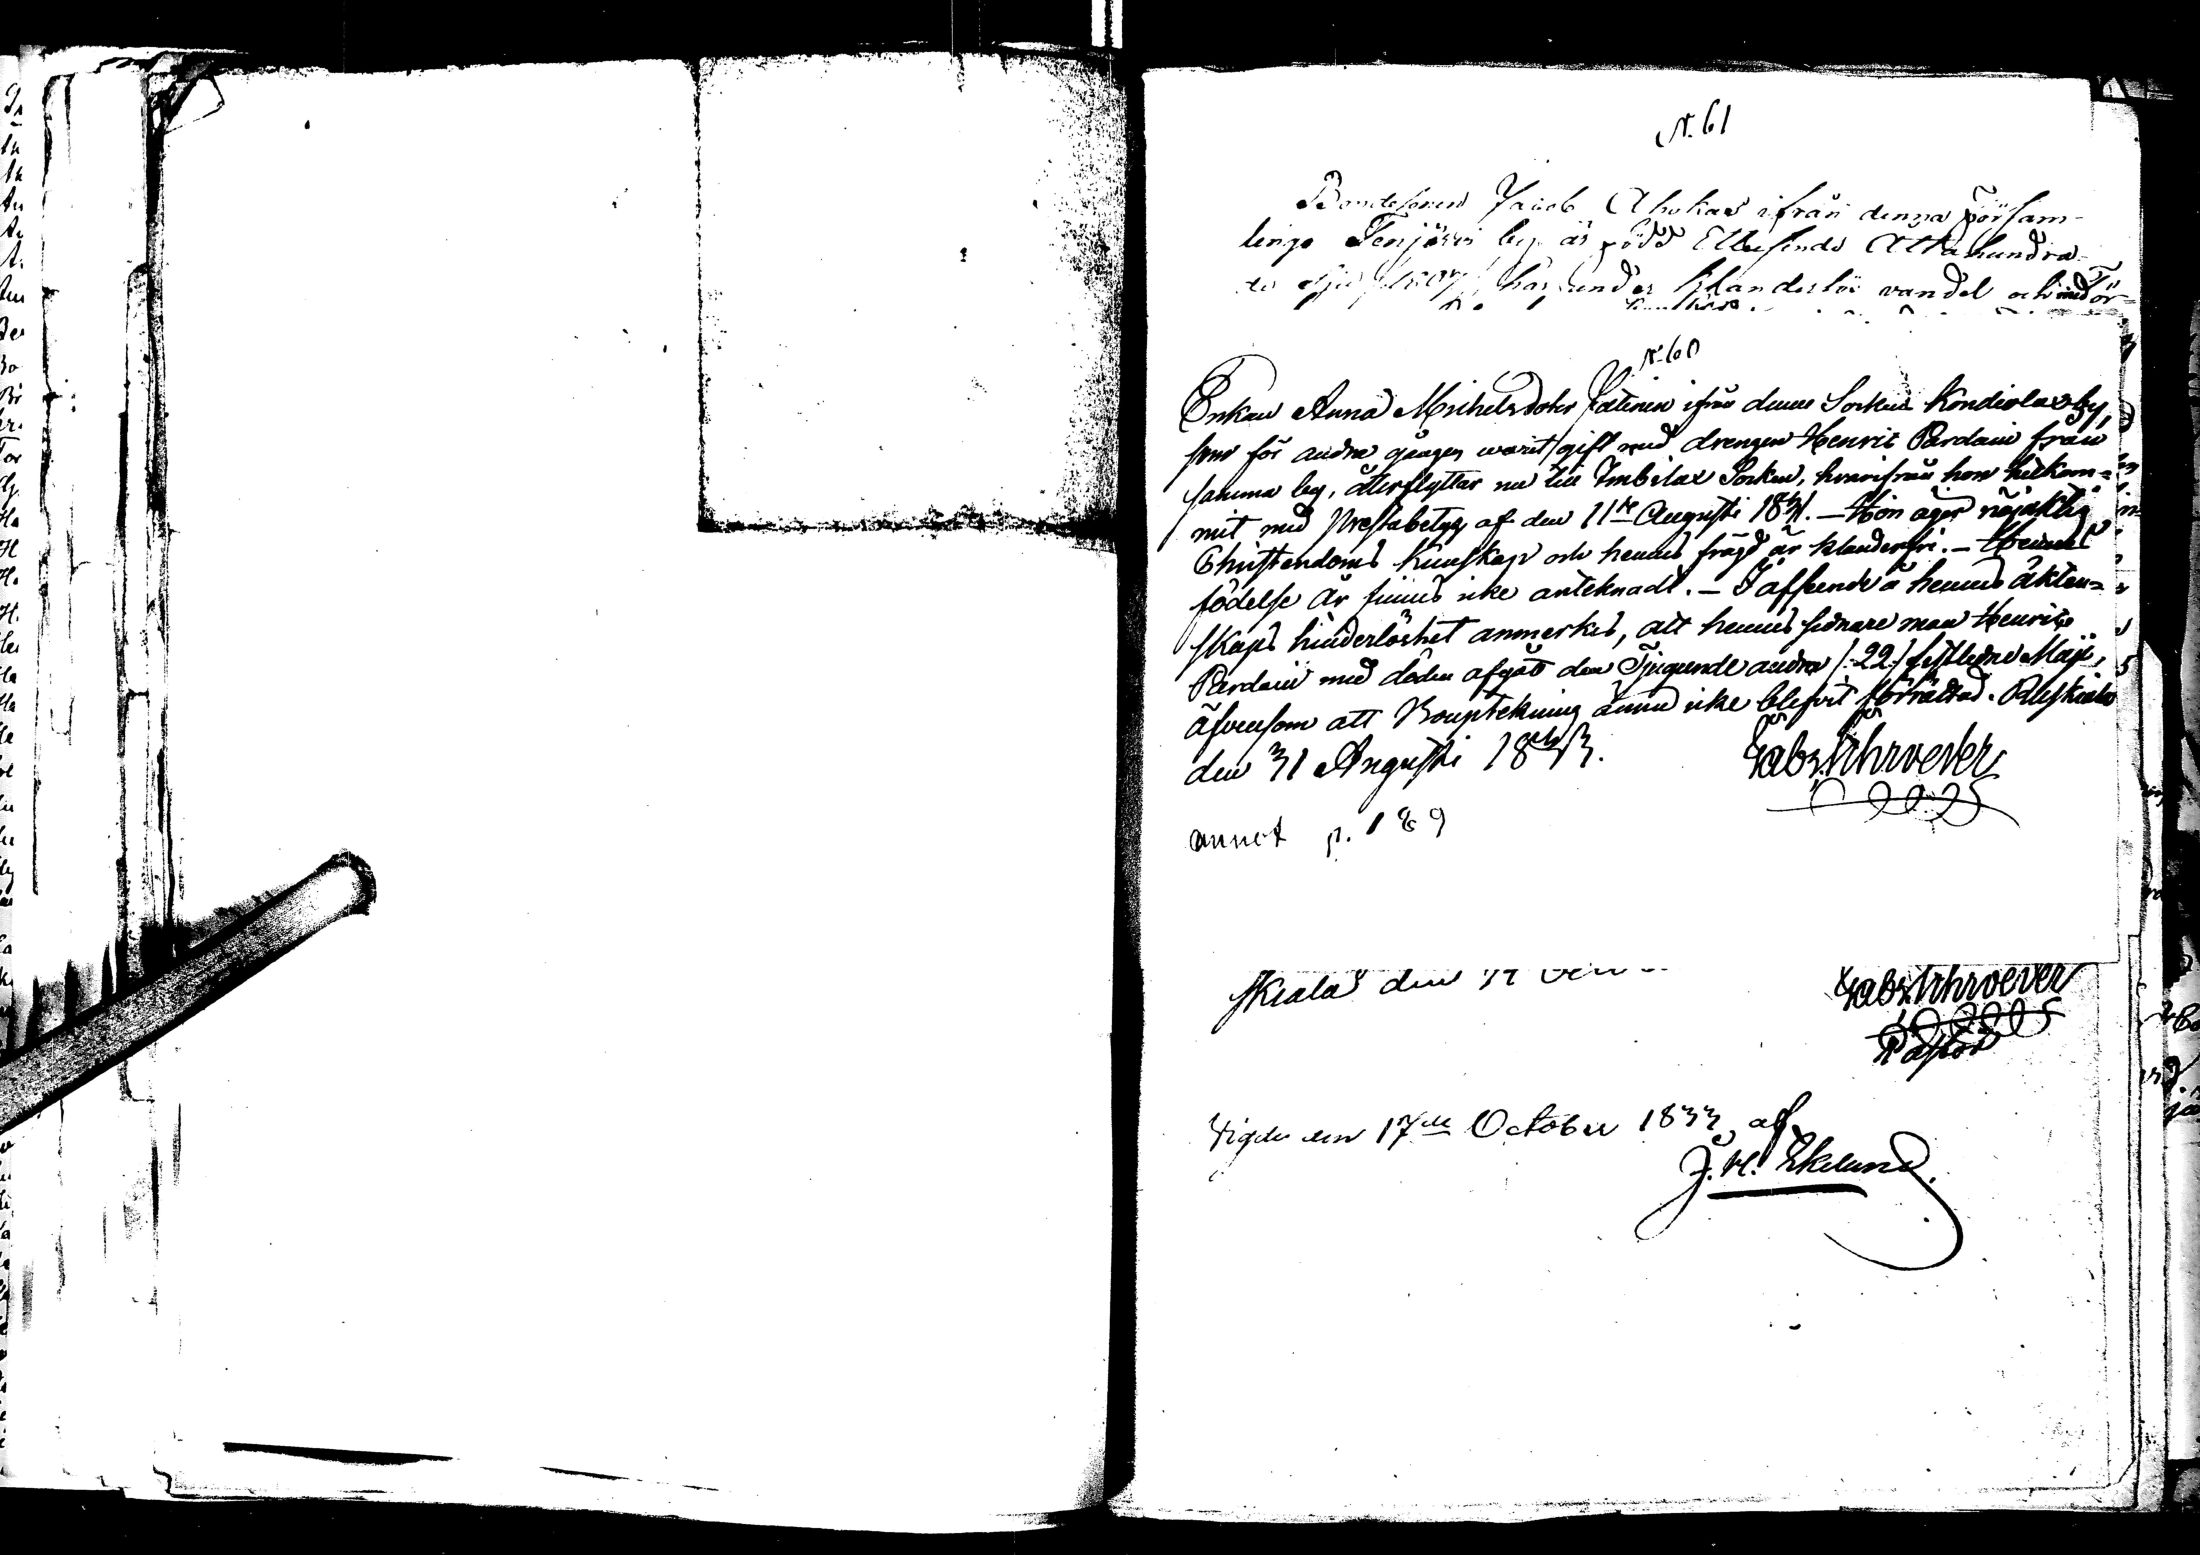 N. 61
Bondesonen Jacob Ahokas ifrån denna Försam-
lings Tenjärvi by är född Ettusende Åttahundra-
de Sju /:1807:/ har under klanderlös vandel och med För-
N. 60
Enkan Anna Michelsdoter Jatinen ifrån denne Sockens Kondiolax by,
som för andra gången warit gift med drengen Henric Pardain från
samma by, återflyttar nu till Imbilax Socken, hvarifrån hon hitkom-
mit med Prestabetyg af den 11te Augusti 1831. – Hon äger nöjaktig
Christendoms kunskap och hennes frägd är klanderfri. – Hennes
födelse år finnes icke anteknadt. – I afseende å hennes äkten-
skaps hinderlöshet anmerkes, att hennes sednare man Henric
Pardain med döden afgåt den Tjugunde andra /:22:/ sistledne Maji,
äfvensom att Bouptekning ännu icke blifvit förrättad. Ruskiala
den 31 Augusti 1833.
Gab. Schroever
annot p. 189
skiala den
Gab. Schroever
Pastor
Vigde den 17de October 1833 af
J. H. Ekelund.